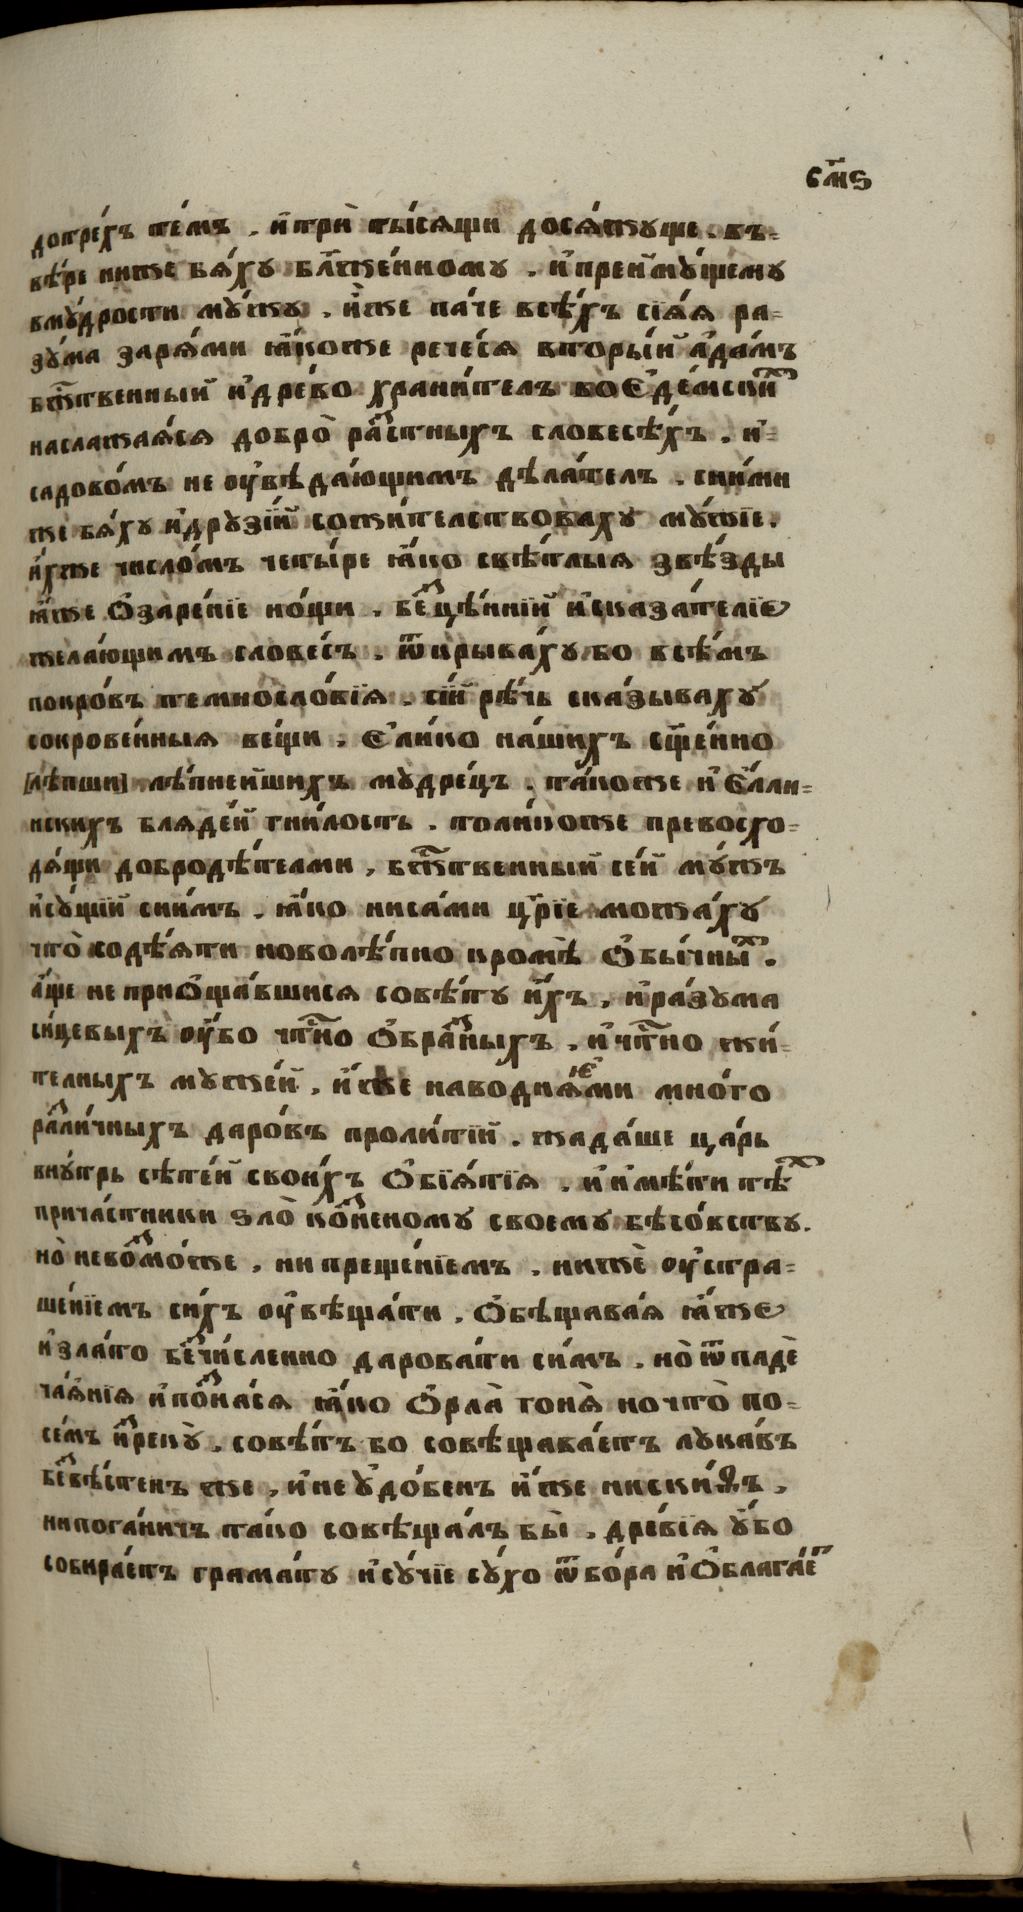 смѕ҃
дотре́хъ те́мъ . и҆трѝ ты́сѧщи досѧ́жꙋще . въ=
вѣ́ре ниже бѧ́хꙋ бл҃же́нномꙋ . и҆преи҆мꙋ́щемꙋ
вмꙋ́дрости мꙋ́жꙋ . и҆́же па́че всѣ́хъ сїѧ́ѧ ра=
зꙋ́ма зарѧ́ми ꙗ҆́коже рече́сѧ вторы́й а҆да́мъ
бж҃твенный и҆дре́во храни́тель во є҆де́мски
наслажаѧ́сѧ добро̀ ра́стныхъ словесѣ́хъ . и҆=
садово́мъ не оу҆вѣда́ющимъ дѣ́латель . сни́ми
же бѧ́хꙋ и҆дрꙋзі́й сожи́телствовахꙋ мꙋ́жїе .
и҆́хже число́мъ четы́ре ꙗ҆́ко свѣ́тлыѧ звѣ́зды
ꙗ҆́же ѡ҆заре́нїе но́щи . бецѣ́ннїи и҆сказа́телїе
жела́ющимъ слове́съ . ѿкрыва́хꙋ бо всѣ́мъ
покро́въ темносло́вїѧ . сі́й рѣ́чь ска́зывахꙋ
сокрове́нныѧ ве́щи . є҆ли́ко на́шихъ сщ҃е́нно
[лѣпши] лѣ́пнейшихъ мꙋдре́цъ . та́коже и҆ є҆́лли=
нскихъ блѧде́й гни́лость . толи́коже превосхо=
дѧ́щи добродѣ́телми , бж҃твенный се́й мꙋ́жъ
и҆сꙋ́щїй сни́мъ . ꙗ҆́ко ниса́ми цр҃їе можа́хꙋ
что̀ содѣ́ѧти новолѣ́пно кромѣ̀ ѡ҆бы́чны .
а҆́ще не приѡ҆ща́вшисѧ совѣ́тꙋ и҆́хъ . и҆ра́зꙋма
си́цевыхъ оу҆́бо чт҃но ѡ҆бра́нныхъ . и҆чт҃но жи=
телныхъ мꙋже́й , и҆́же наводнѧ́еми мно́го
рали́чныхъ даро́въ проли́тїй . жада́ше ца́рь
внꙋ́трь сѣте́й свои́хъ ѡ҆бїѧ́тїѧ . и҆и҆мѣ́ти тѣ
прича́стники ѕло̀ ко́зненомꙋ своемꙋ бѣсо́вствꙋ.
но̀ невозмо́же , ни преще́нїемъ . нижѐ оу҆стра=
ше́нїемъ си́хъ оу҆вѣща́ти . ѡ҆бѣщава́ѧ ꙗ҆́же
и҆зла́то бечи́сленно дарова́ти си́мъ . но̀ ѿпадѐ
ча́ѧнїѧ и҆позна́сѧ ꙗ҆́ко ѻ҆рла̀ гонѧ̀ но что̀ по=
се́мъ и҆зрекꙋ̀ . совѣ́тъ бо совѣщава́етъ лꙋка́въ
безвѣ́стенъ же , и҆не ᲂу҆до́бенъ и҆́же нискиѳъ ,
нипоганичъ та́ко совѣща́лъ бы̀ . дре́вїѧ ᲂу҆́бо
собира́етъ грама́тꙋ и҆сꙋ́чїе сꙋ́хо ѿбо́ра и҆ѡ҆блага́е